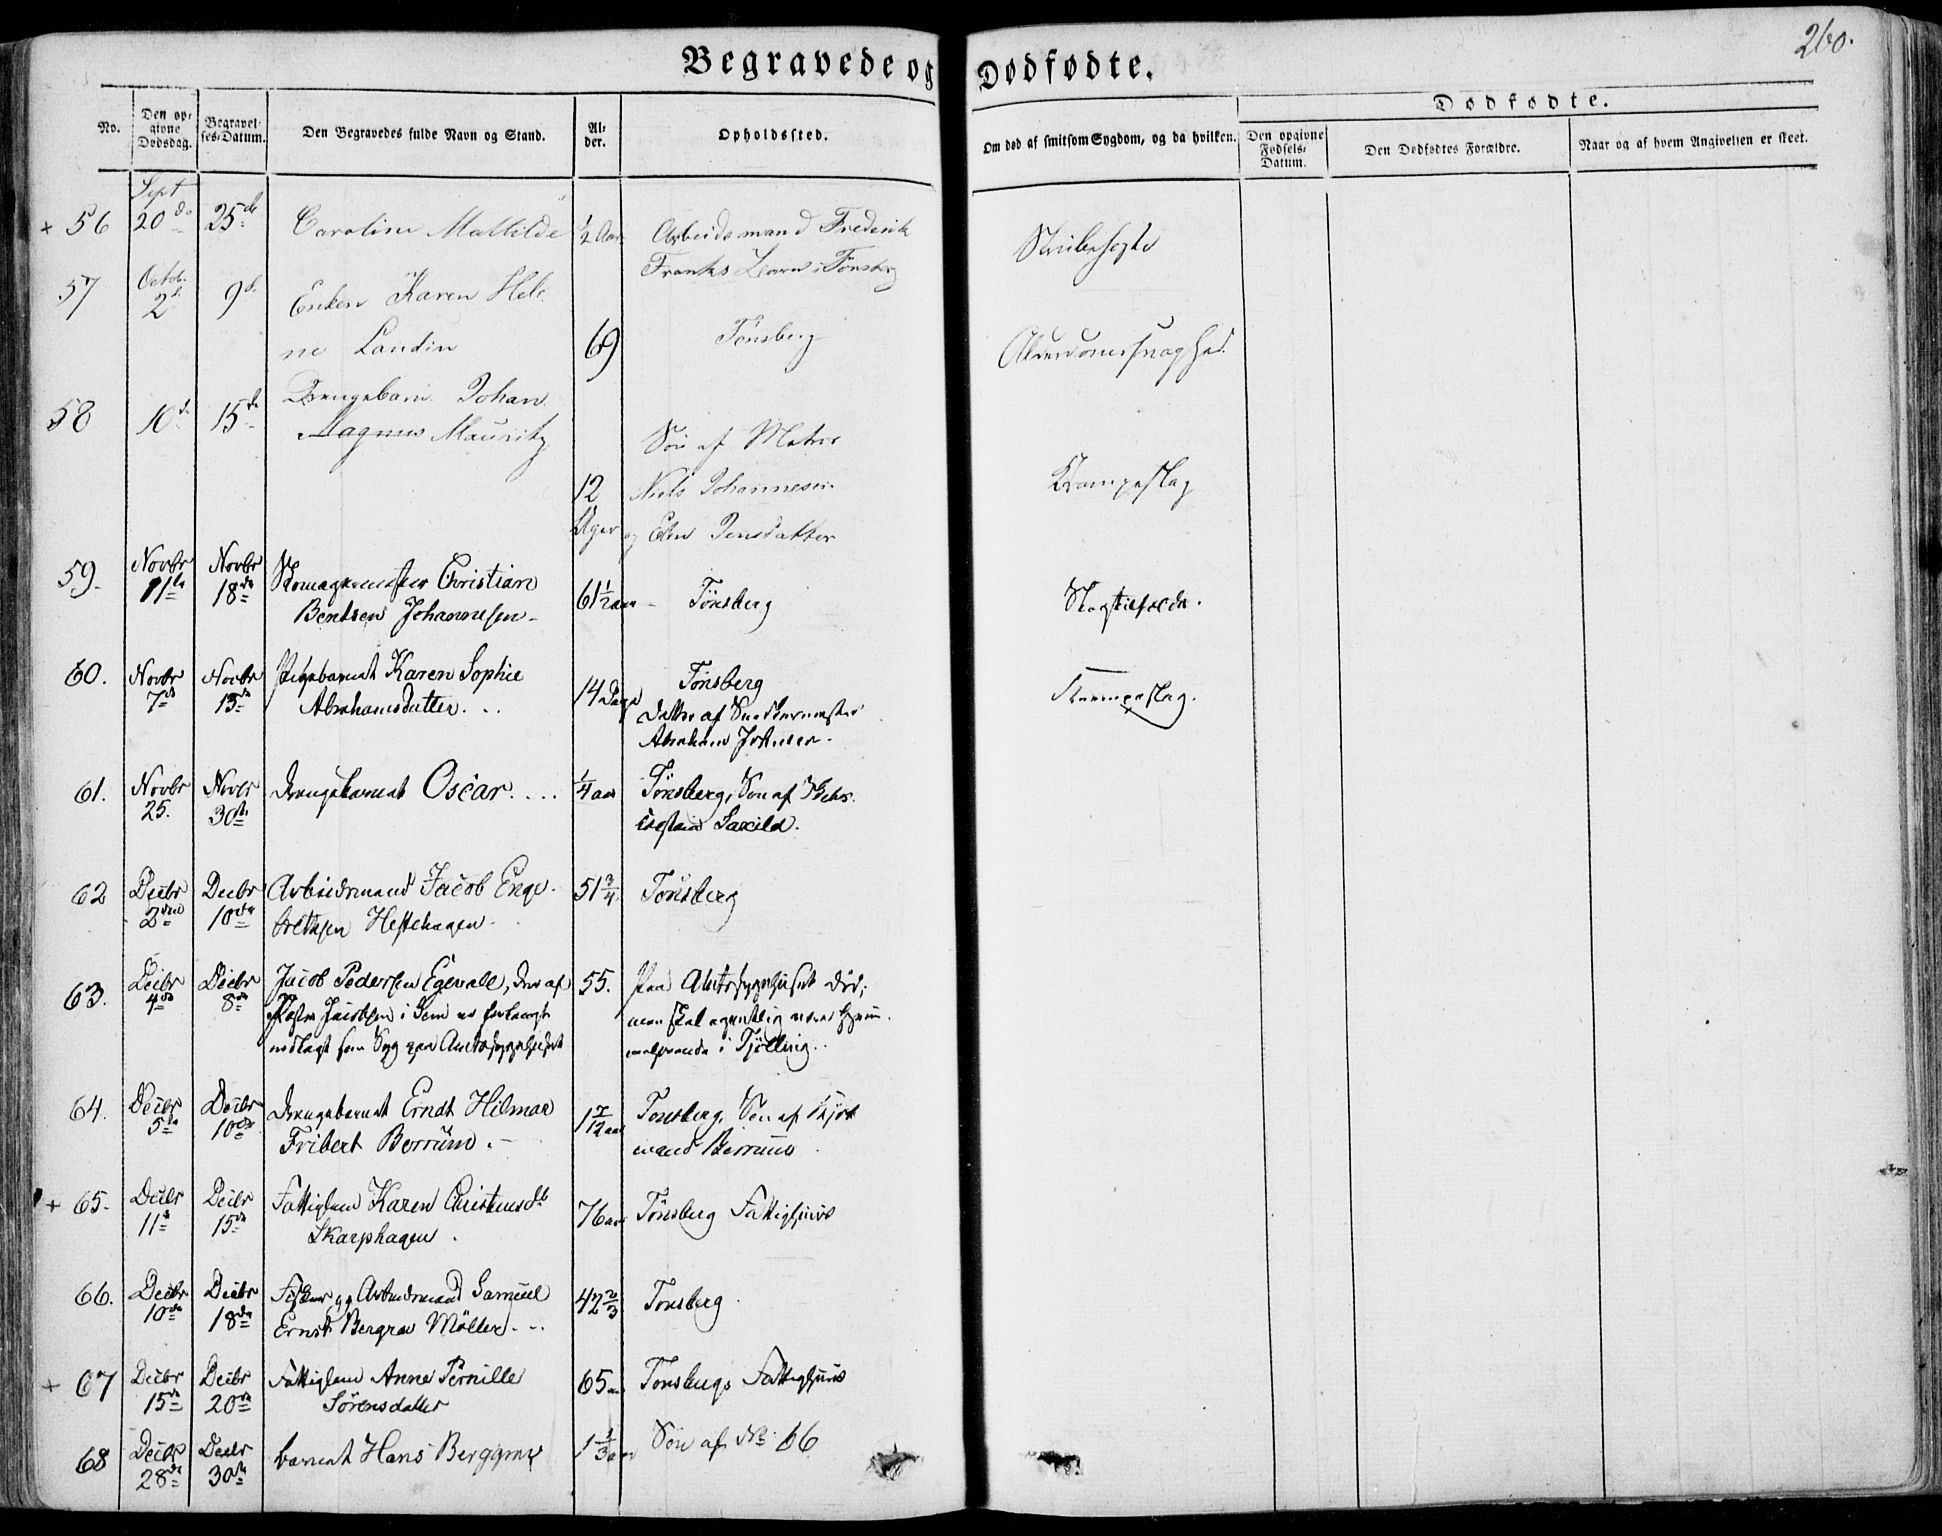 260.
Begravede og Dødfødte.
No.
Den op-
givne
Dødsdag.
Begravel-
ses-Datum.
Den Begravedes fulde Navn og Stand.
Al-
der.
Opholdssted.
Om død af smitsom Sygdom, og da hvilken.
Dødfødte.
Den opgivne
Fødsels-
Datum.
Den Dødfødtes Forældre.
Naar og af hvem Angivelsen er skeet.
+ 56 Sept 20de 25de Caroline Mathilde 1/2 Aar Arbeidsmand Frederik
Franks Barn i Tønsberg
57 Octob. 2d. 9d. Enken Karen Hele
ne Landin 69 Tønsberg
58 10d. 15de Drengebarn Johan
Magnus Mauritz
12 Uger
Søn af Matros
Niels Johannesen
og Elen Jensdatter
Krampeslag
59. Novbr 11te Novbr 18de Skomagermester Christian
Bentsen Johannesen 61 1/2 aar Tønsberg
Slagtilfælde.
60. Novbr 7de Novbr 13de Pigebarnet Karen Sophie
Abrahamsdatter... 14 Dage Tønsberg
Datter af Snedkermester
Abraham
Krampeslag.
61. Novbr 25. Novbr 30te Drengebarnet Oscar.... 1/4 aar Tønsberg, Søn af
Saxild.
62 Decbr 2den Decbr 10de Arbeidsmand Jacob Enge-
brethsen Hestehagen 51 3/4 Tønsberg
63. Decbr 4de Decbr 8de Jacob Pedersen Egevall, der af
Jacobsen i Sem er forlangt
indlagt som Syg paa Amtssygehuset
55. Paa Amtssygehuset død;
man skal egentlig være
i Tjølling.
64. Decbr 5te Decbr 10de Drengebarnet Erndt Hilmar
Fribert Berrum. 1 7/12 aar Tønsberg, Søn af
mand Berrum
+ 65. Decbr 11te Decbr 15de Fattiglem Karen Christensdtr
Skarphagen. 76 aar Tønsberg Fattighuus
66. Decbr 10de Decbr 18de Fisker og Arbeidsmand Samuel
Ernst Bergrav Møller... 42 2/3 Tønsberg
+ 67 Decbr 15de Decbr 20de Fattiglem Anne Pernille
Sørensdatter 65 aar Tønsbergs Fattighuus
68 Decbr 28de Decbr 30te barnet Hans 1 1/3 aar Søn af No 66